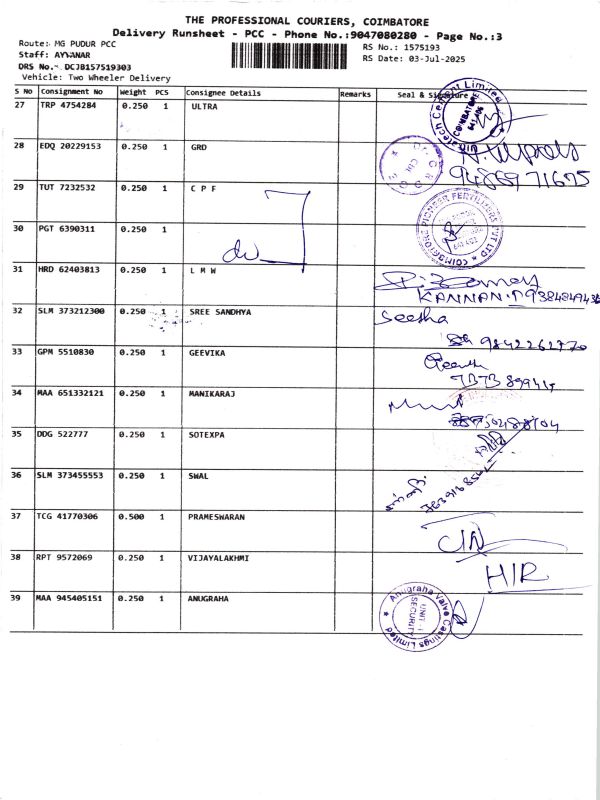 THE PROFESSIONAL COURIERS, COIMBATORE
Delivery Runsheet - PCC - Phone No.:9047080280 - Page No.:3
Route: MG PUDUR PCC
RS No.: 1575193
Staff: AYYANAR
RS Date: 03-Jul-2025
DRS No.: DCJB157519303
Vehicle: Two Wheeler Delivery
S No Consignment No Weight PCS Consignee Details Remarks Seal & Signature
27 TRP 4754284 0.250 1 ULTRA
Ultratech Cement Limited
COIMBATORE
28 EDQ 20229153 0.250 1 GRD
9486971675
29 TUT 7232532 0.250 1 C P F
PIONEER FERTILIZERS PVT LTD
30 PGT 6390311 0.250 1
31 HRD 62403813 0.250 1 L M W
KANNAN.D
32 SLM 373212300 0.250 1 SREE SANDHYA
Seesha
9842262770
33 GPM 5510830 0.250 1 GEEVIKA
34 MAA 651332121 0.250 1 MANIKARAJ
35 DDG 522777 0.250 1 SOTEXPA
36 SLM 373455553 0.250 1 SWAL
37 TCG 41770306 0.500 1 PRAMESWARAN
38 RPT 9572069 0.250 1 VIJAYALAKHMI
H/R
39 MAA 945405151 0.250 1 ANUGRAHA
Anugraha Valve Castings Limited
UNIT-II
SECURITY